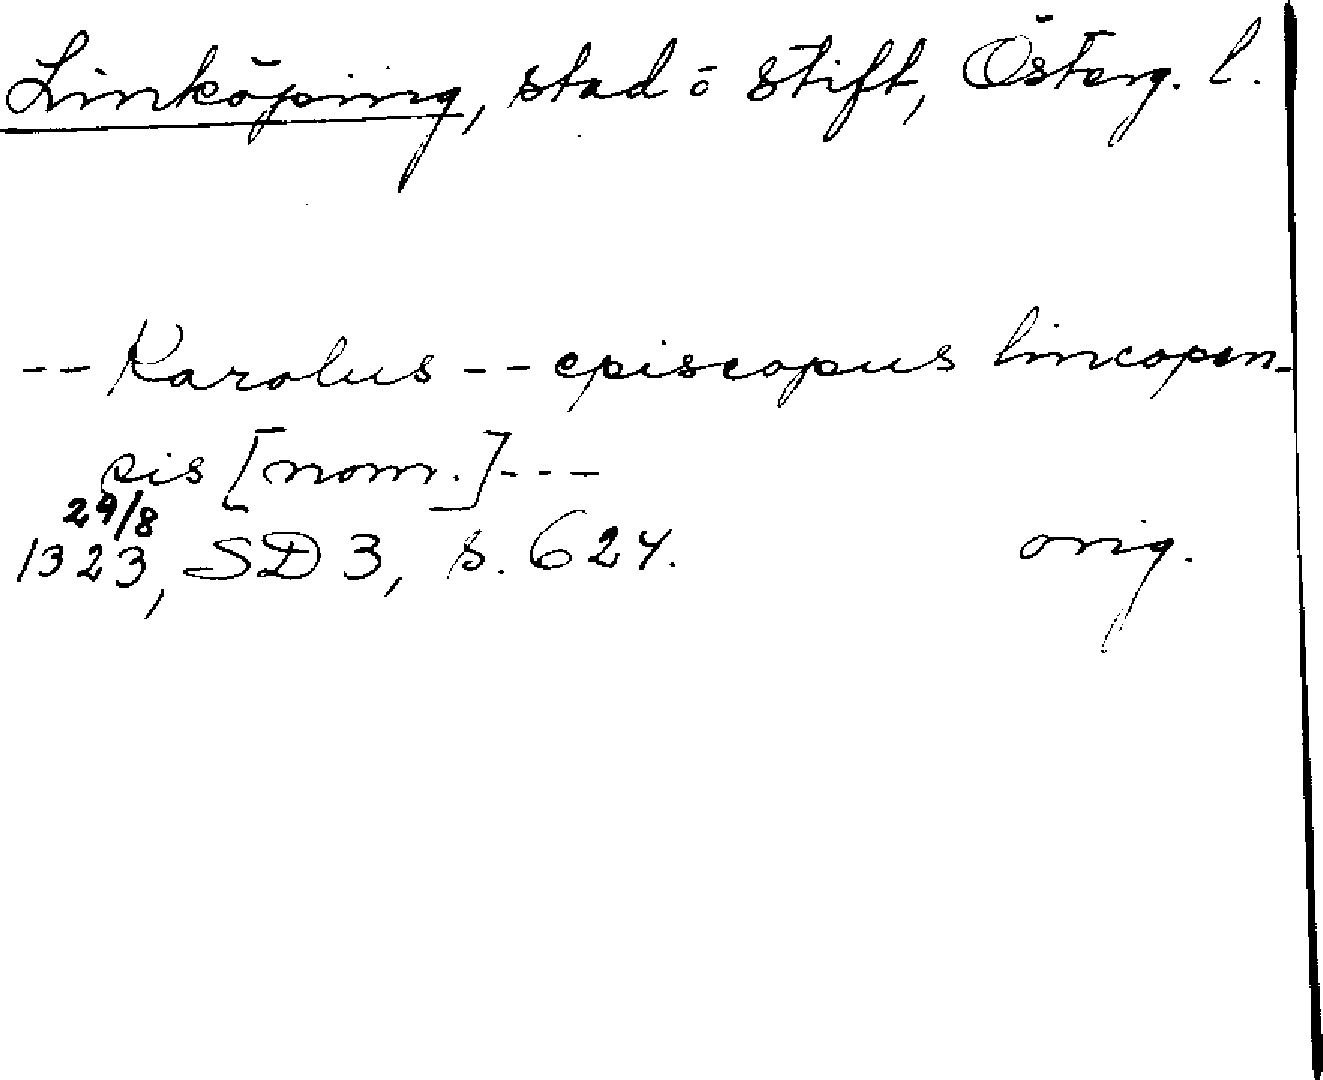 Linköping, stad o stift, Österg. l.
-- Karolus -- episcopus lincopen-
sis [nom.]---
29/8
1323, SD 3, s. 624. orig.